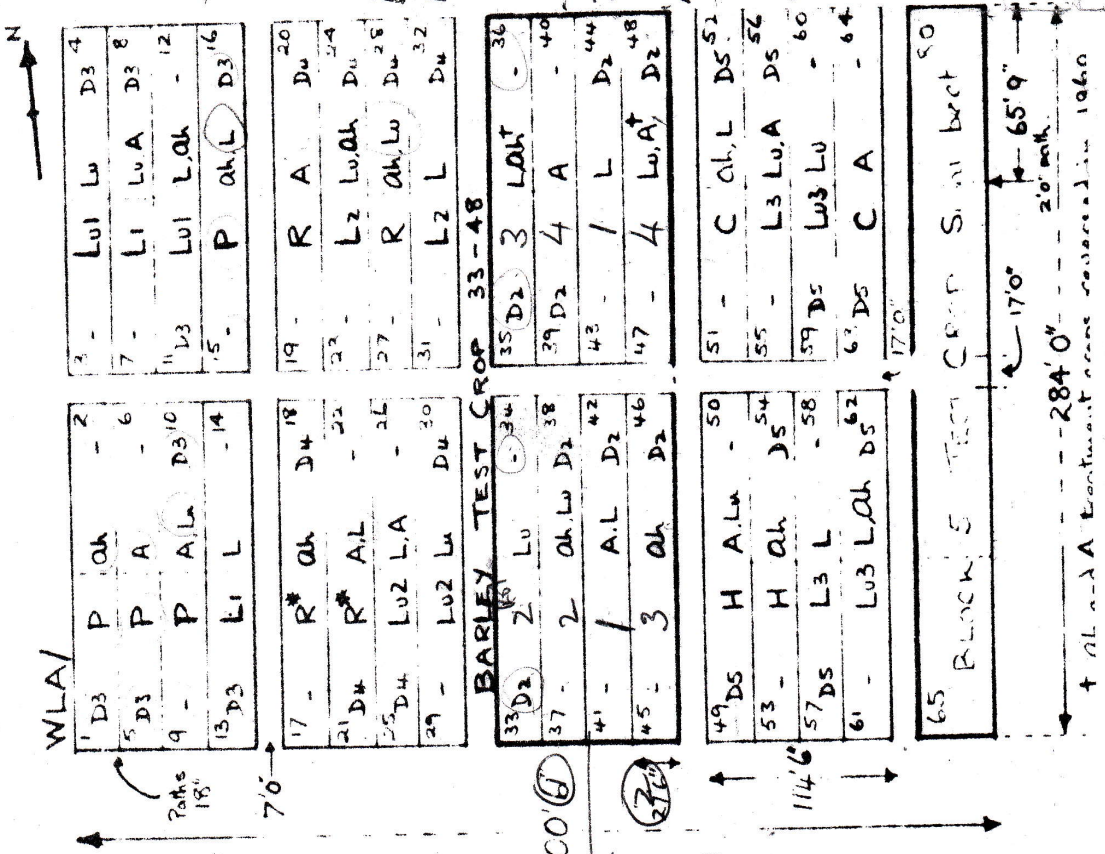 N
WLA/
1 D3 P ah - 2
3 - Lu1 Lu D3 4
5 D3 P A - 6
7 - L1 Lu A D3 8
9 - P A, Lu D3 10
11 D3 Lu1 L, ah - 12
13 D3 L1 L - 14
15 - P ah, L D3 16
Paths 18"
7'0"
17 - R* ah D4 18
19 - R A D4 20
21 D4 R* A, L - 22
23 - L2 Lu, ah D4 24
25 D4 Lu2 L, A - 26
27 - R ah, Lu D4 28
29 - Lu2 Lu D4 30
31 - L2 L D4 32
BARLEY TEST CROP 33-48
33 D2 2 Lu - 34
35 D2 3 L, ah† - 36
37 - 2 ah, Lu D2 38
39 D2 4 A - 40
41 - 1 A, L D2 42
43 - 1 L D2 44
45 - 3 ah D2 46
47 - 4 Lu, A† D2 48
49 D5 H A, Lu - 50
51 - C ah, L D5 52
53 - H ah D5 54
55 - L3 Lu, A D5 56
57 D5 L3 L - 58
59 D5 Lu3 Lu - 60
61 - Lu3 L, ah D5 62
63 D5 C A - 64
114'6"
17'0"
65 BLOCK 5 TEST CROP 80
17'0"
65'9"
2'0" path
284'0"
† ah and A treatment crops reversed in 1960